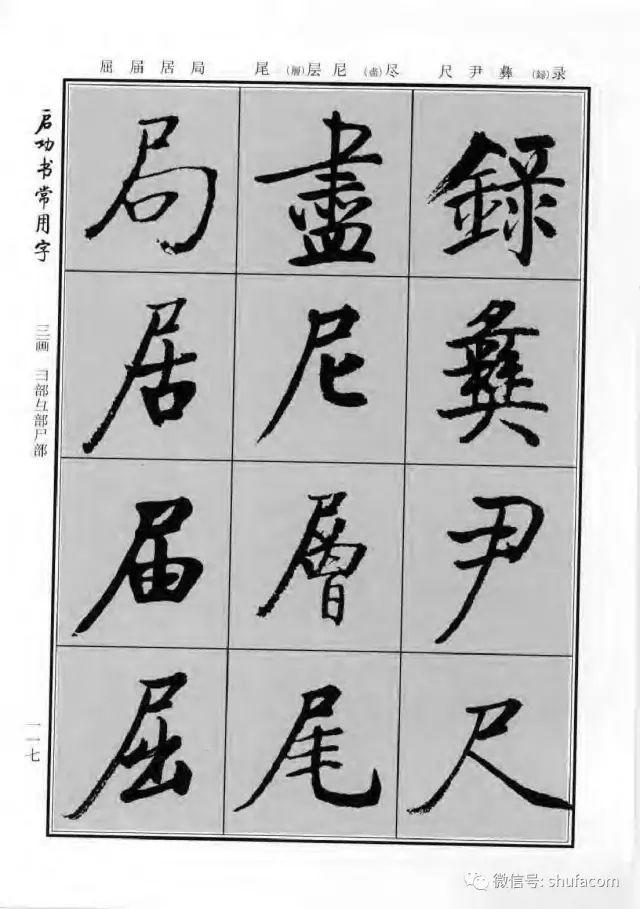 录(録) 彝 尹 尺
尽(盡) 尼 层(層) 尾
局 居 届 屈
録 彝 尹 尺
盡 尼 層 尾
局 居 届 屈
启功书常用字
三画 彐部彑部尸部
一一七
微信号: shufacom